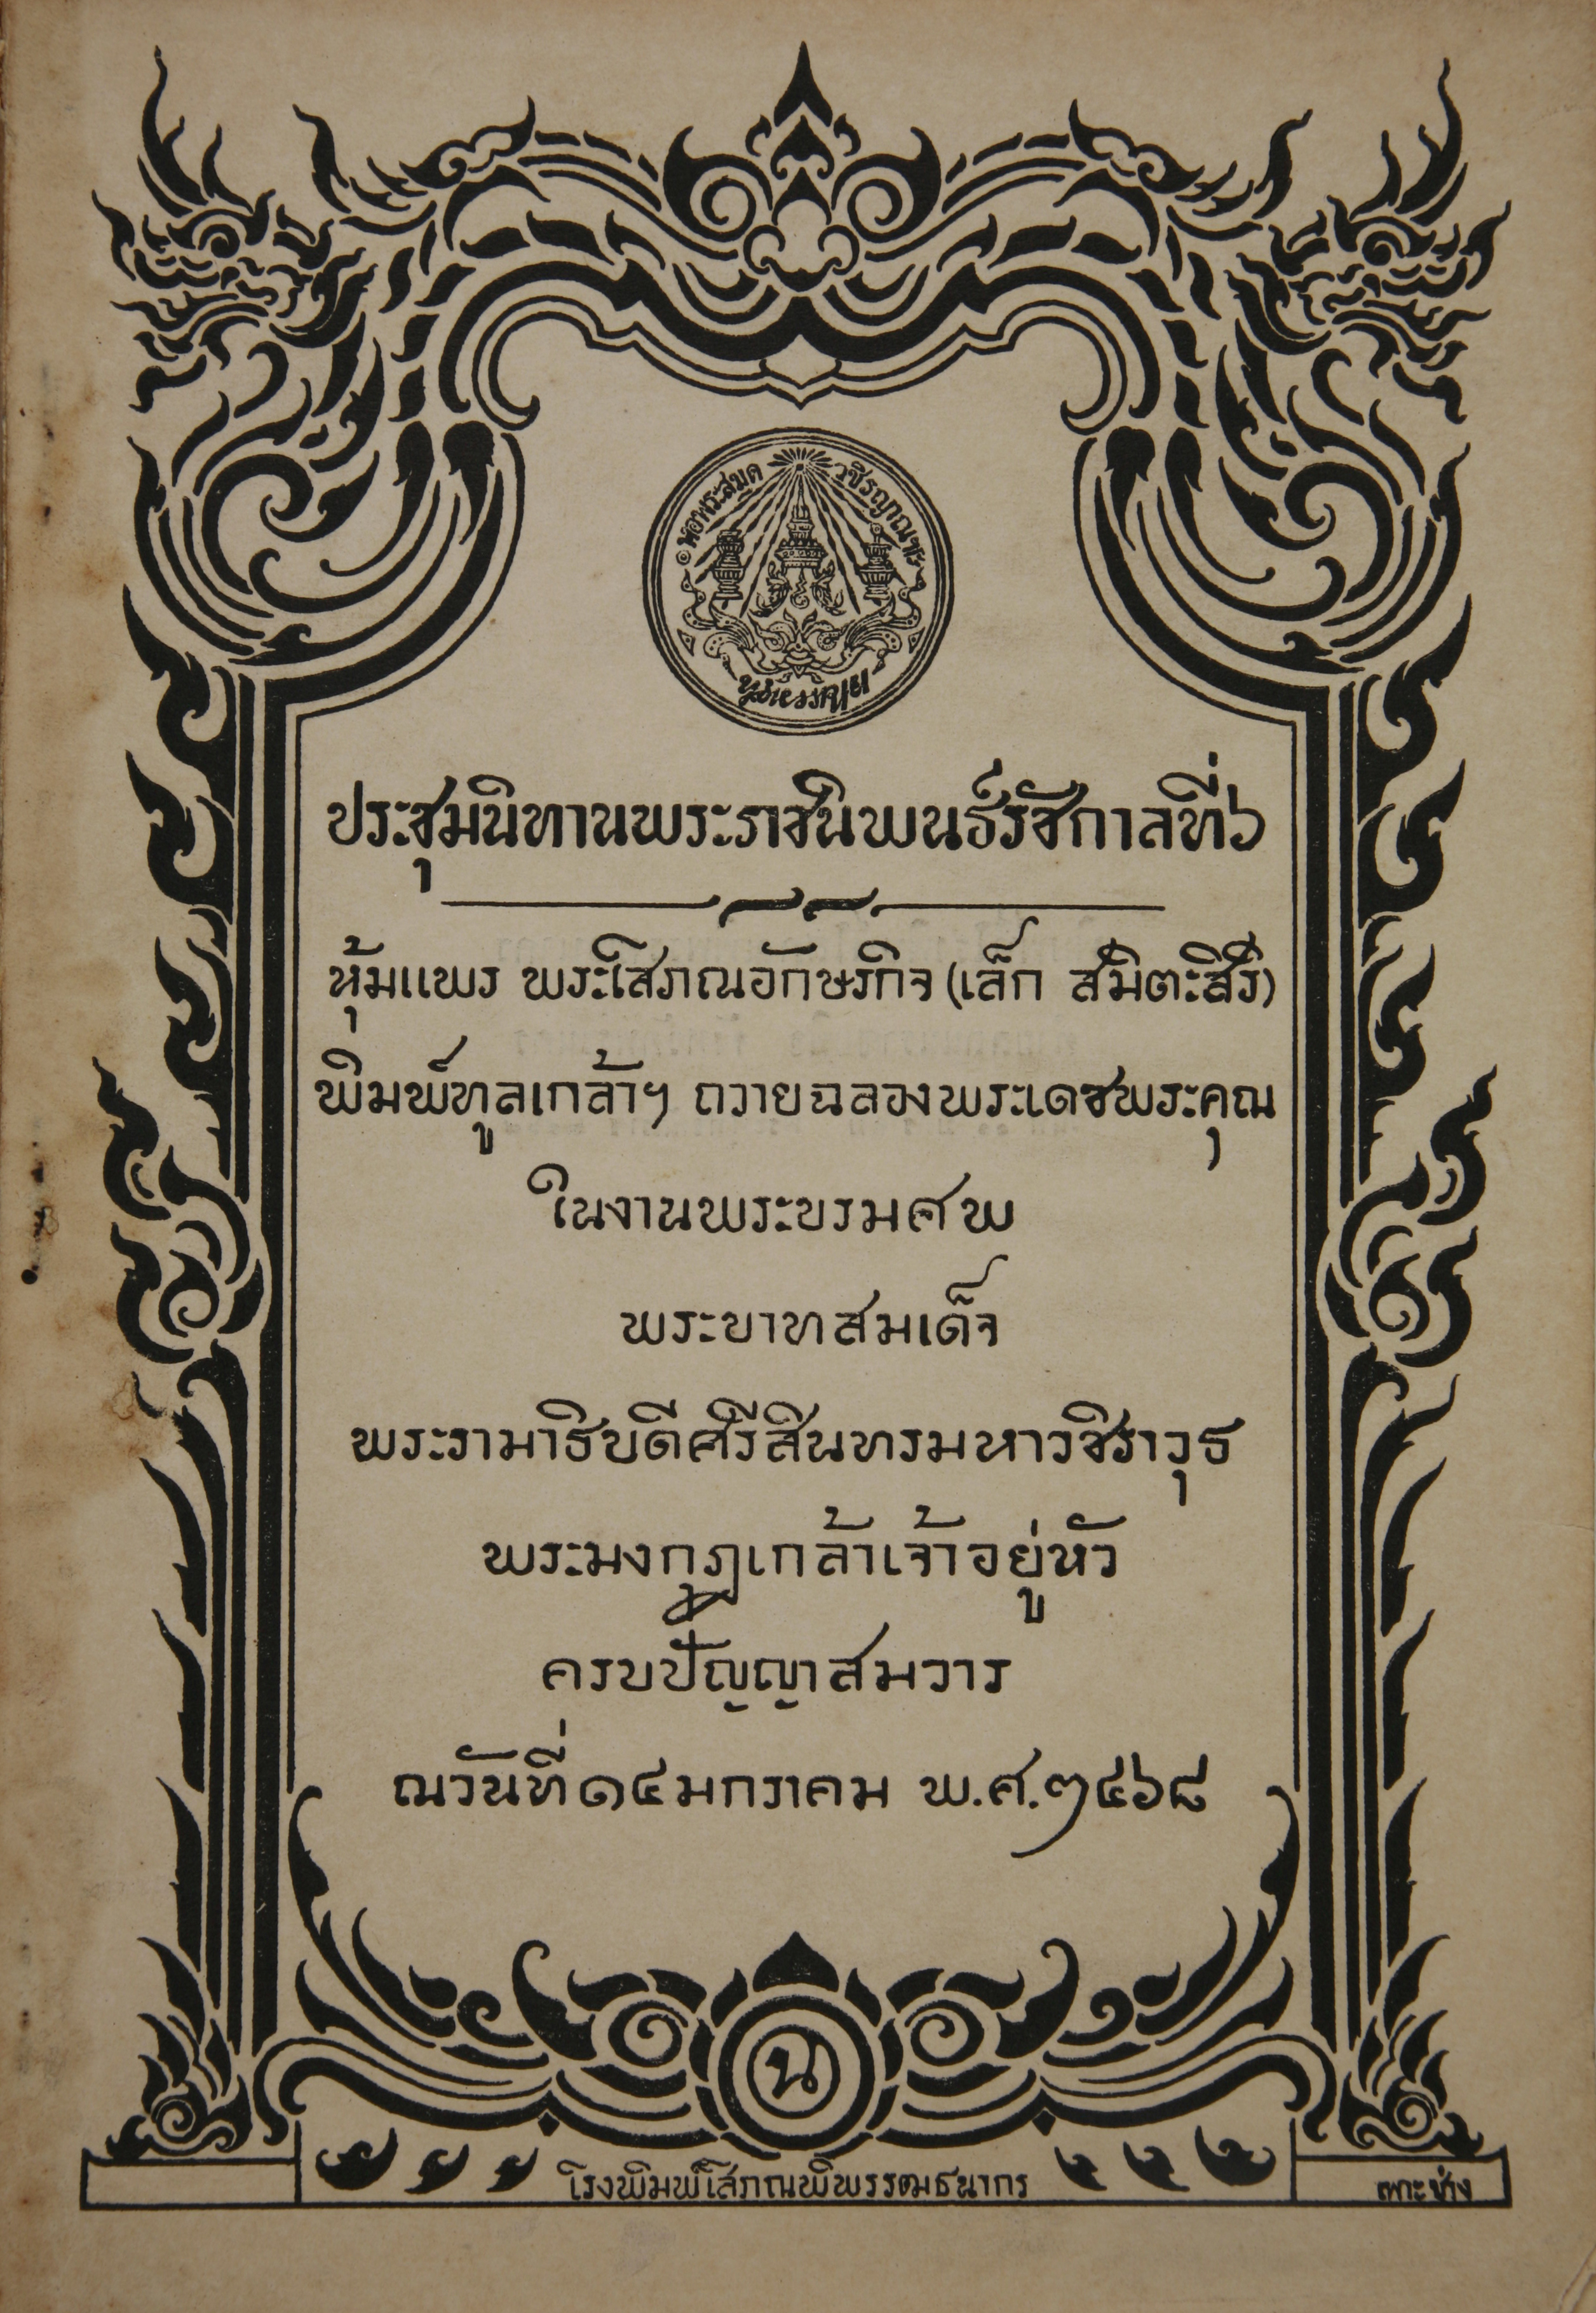 หอพระสมุด วชิรญาณฯ
ประชุมนิทานพระราชนิพนธ์รัชกาลที่๖
หุ้มแพร พระโสภณอักษรกิจ (เล็ก สมิตะสิริ)
พิมพ์ทูลเกล้าฯ ถวายฉลองพระเดชพระคุณ
ในงานพระบรมศพ
พระบาทสมเด็จ
พระรามาธิบดีศรีสินทรมหาวชิราวุธ
พระมงกุฎเกล้าเจ้าอยู่หัว
ครบปัญญาสมวาร
ณวันที่๑๔มกราคม พ.ศ.๒๔๖๘
น
โรงพิมพ์โสภณพิพรรฒธนากร
เพาะช่าง